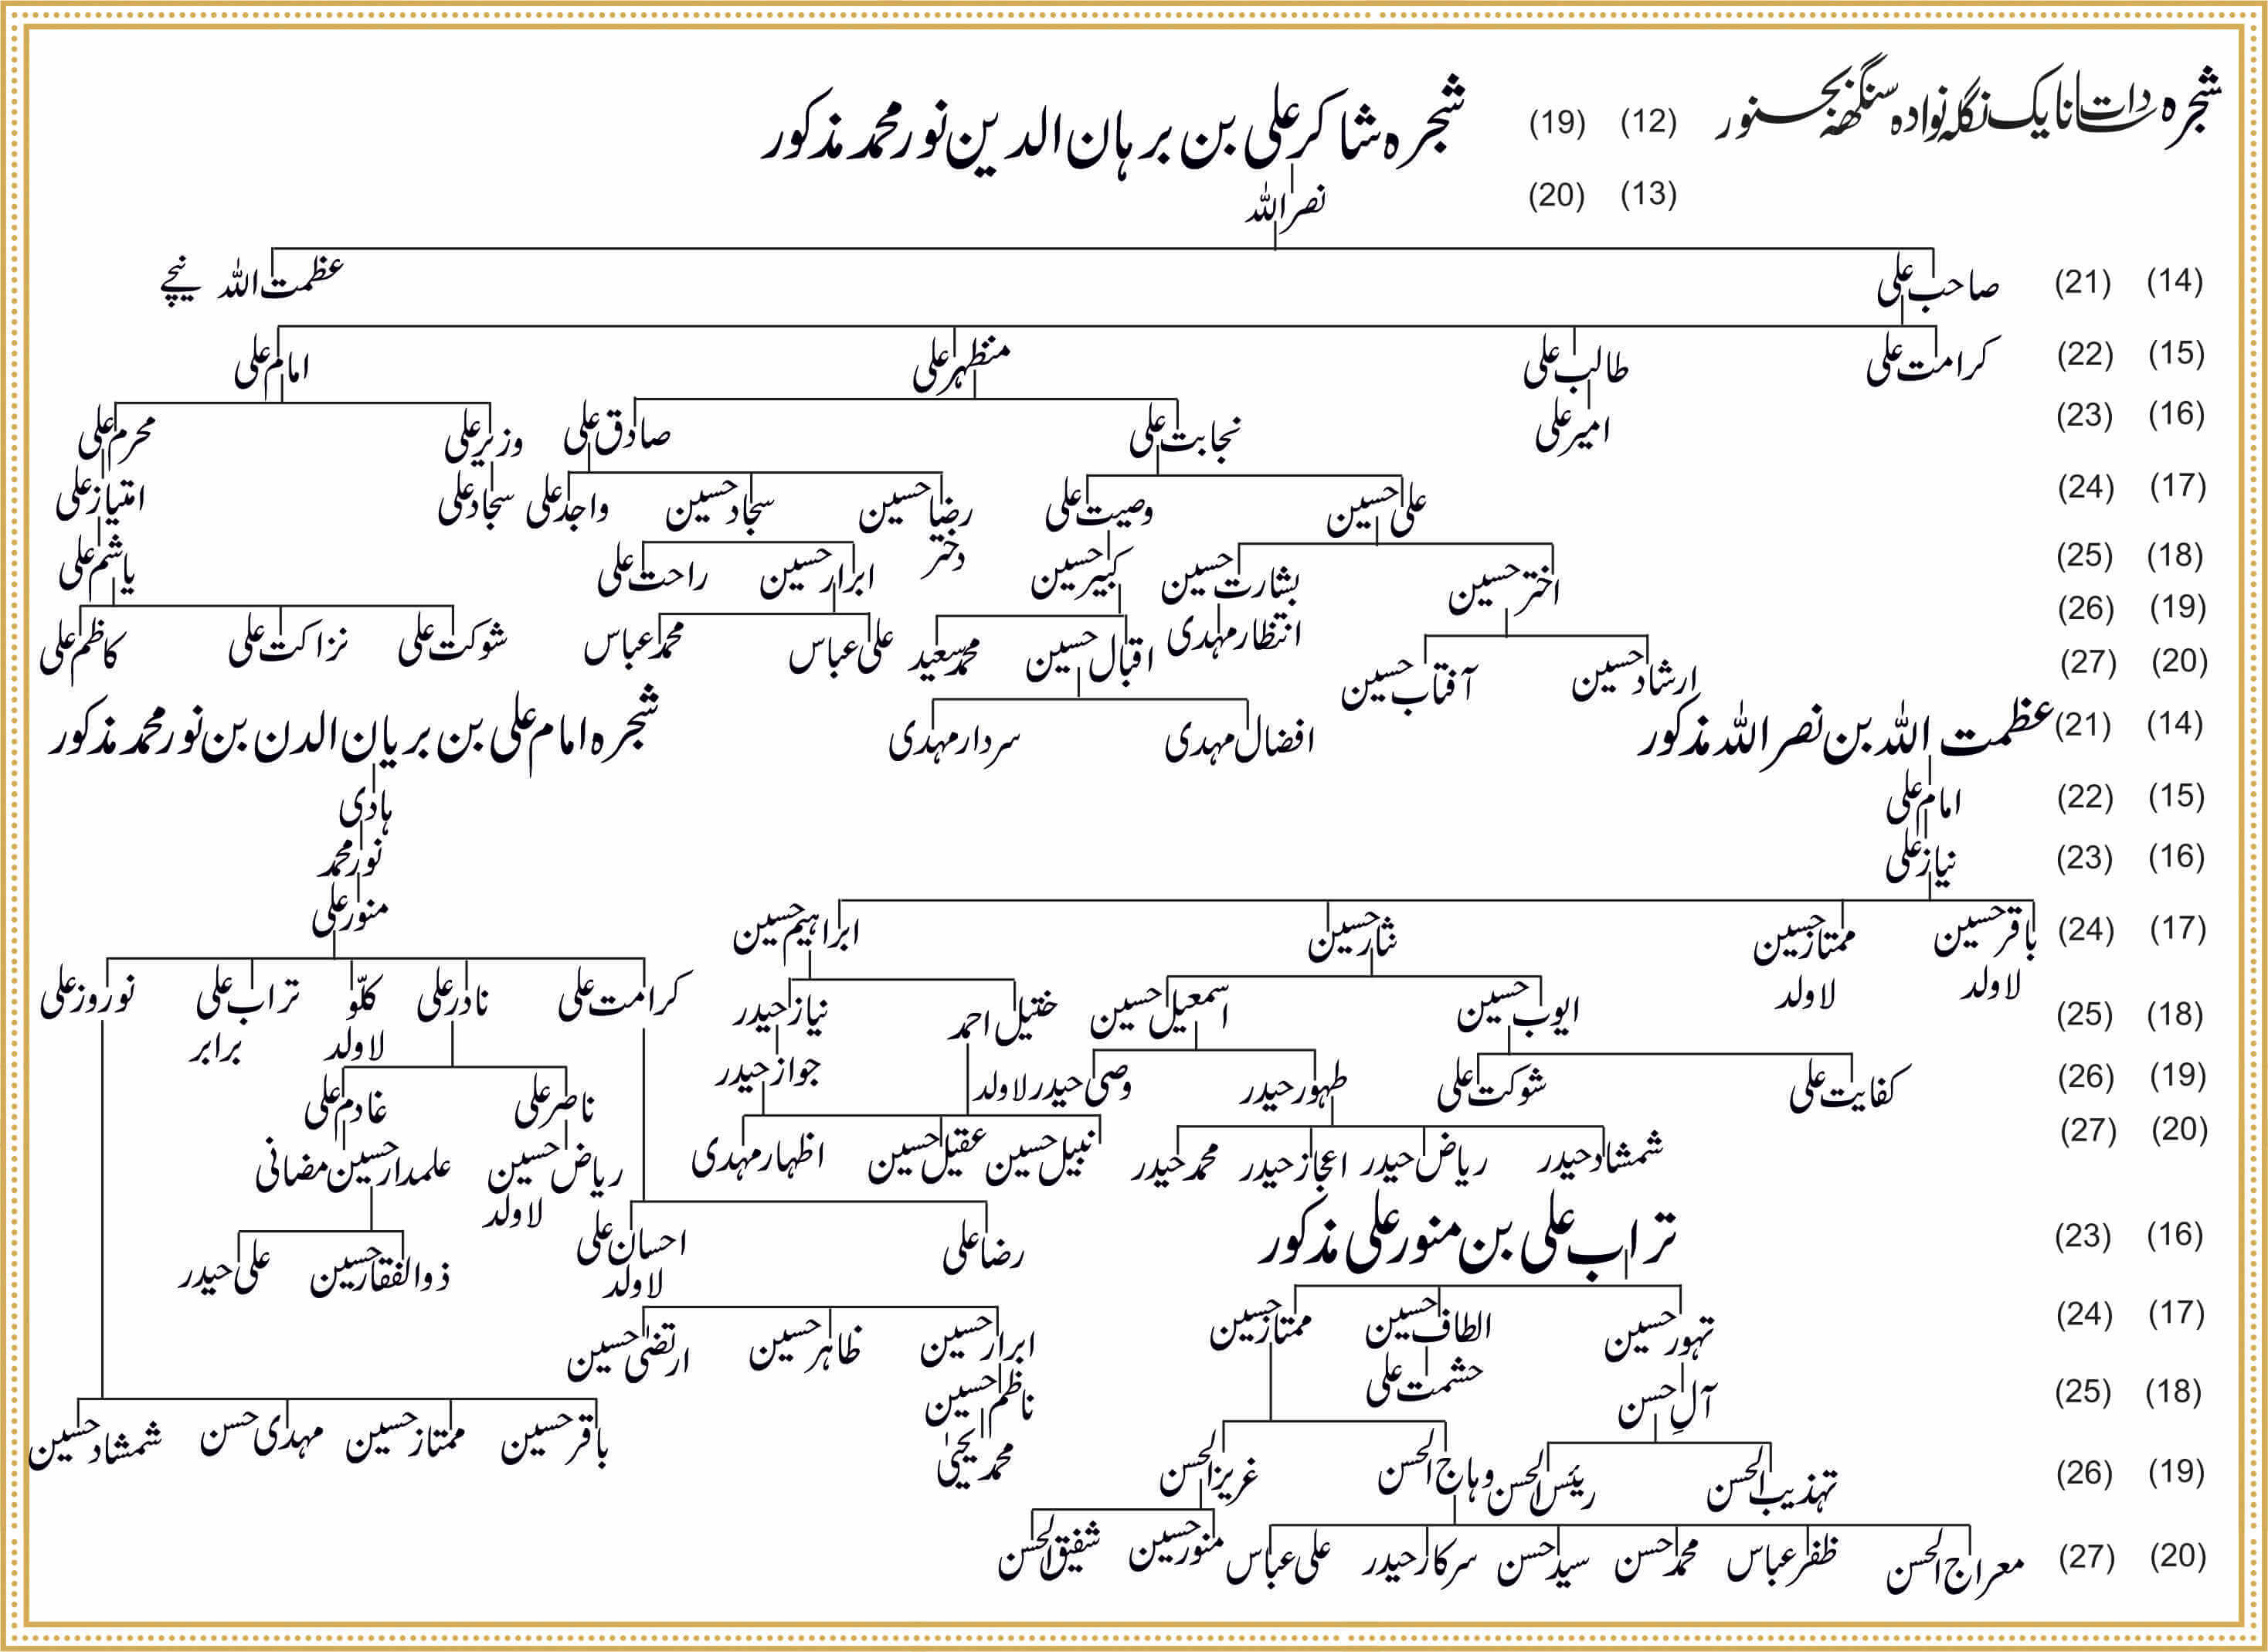 شجرہ سادات نایک نگلہ نوادہ سنگھہ بجنور
(12) (19) شجرہ شاکر علی بن برہان الدین نور محمد مذکور
(13) (20) نصر اللہ
(14) (21) صاحب علی عظمت اللہ نیچے
(15) (22) کرامت علی طالب علی منظہر علی امام علی
(16) (23) امیر علی نجابت علی صادق علی وزیر علی محرم علی
(17) (24) علی حسین وصیت علی رضا حسین سجاد حسین واجد علی سجاد علی امتیاز علی
(18) (25) اختر حسین بشارت حسین کبیر حسین دختر ابرار حسین راحت علی ہاشم علی
(19) (26) انتظار مہدی
(20) (27) ارشاد حسین آفتاب حسین اقبال حسین محمد سعید علی عباس محمد عباس شوکت علی نزاکت علی کاظم علی
افضال مہدی سردار مہدی
(14) (21) عظمت اللہ بن نصر اللہ مذکور شجرہ امام علی بن بریان الدن بن نور محمد مذکور
(15) (22) امام علی ہادی
(16) (23) نیاز علی نور محمد
منور علی
(17) (24) باقر حسین ممتاز حسین نثار حسین ابراہیم حسین
لاولد لاولد
(18) (25) ایوب حسین اسمعیل حسین ختیل احمد نیاز حیدر کرامت علی نادر علی کلّو تراب علی نوروز علی
لاولد برابر
(19) (26) کفایت علی شوکت علی طہور حیدر وصی حیدر لاولد جواز حیدر ناصر علی غادم علی
(20) (27) شمشاد حیدر ریاض حیدر اعجاز حیدر محمد حیدر نبیل حسین عقیل حسین اظہار مہدی ریاض حسین علمدار حسین مضانی
لاولد
(16) (23) تراب علی بن منور علی مذکور رضا علی احسان علی ذوالفقار حسین علی حیدر
لاولد
(17) (24) تہور حسین الطاف حسین ممتاز حسین ابرار حسین ظاہر حسین ارتضیٰ حسین
(18) (25) آلِ حسن حشمت علی ناظم حسین
باقر حسین ممتاز حسین مہدی حسن شمشاد حسین
(19) (26) تہذیب الحسن رئیس الحسن وہاج الحسن غریز الحسن محمد یحییٰ
(20) (27) معراج الحسن ظفر عباس محمد حسن سید حسن سرکار حیدر علی عباس منور حسین شفیق الحسن